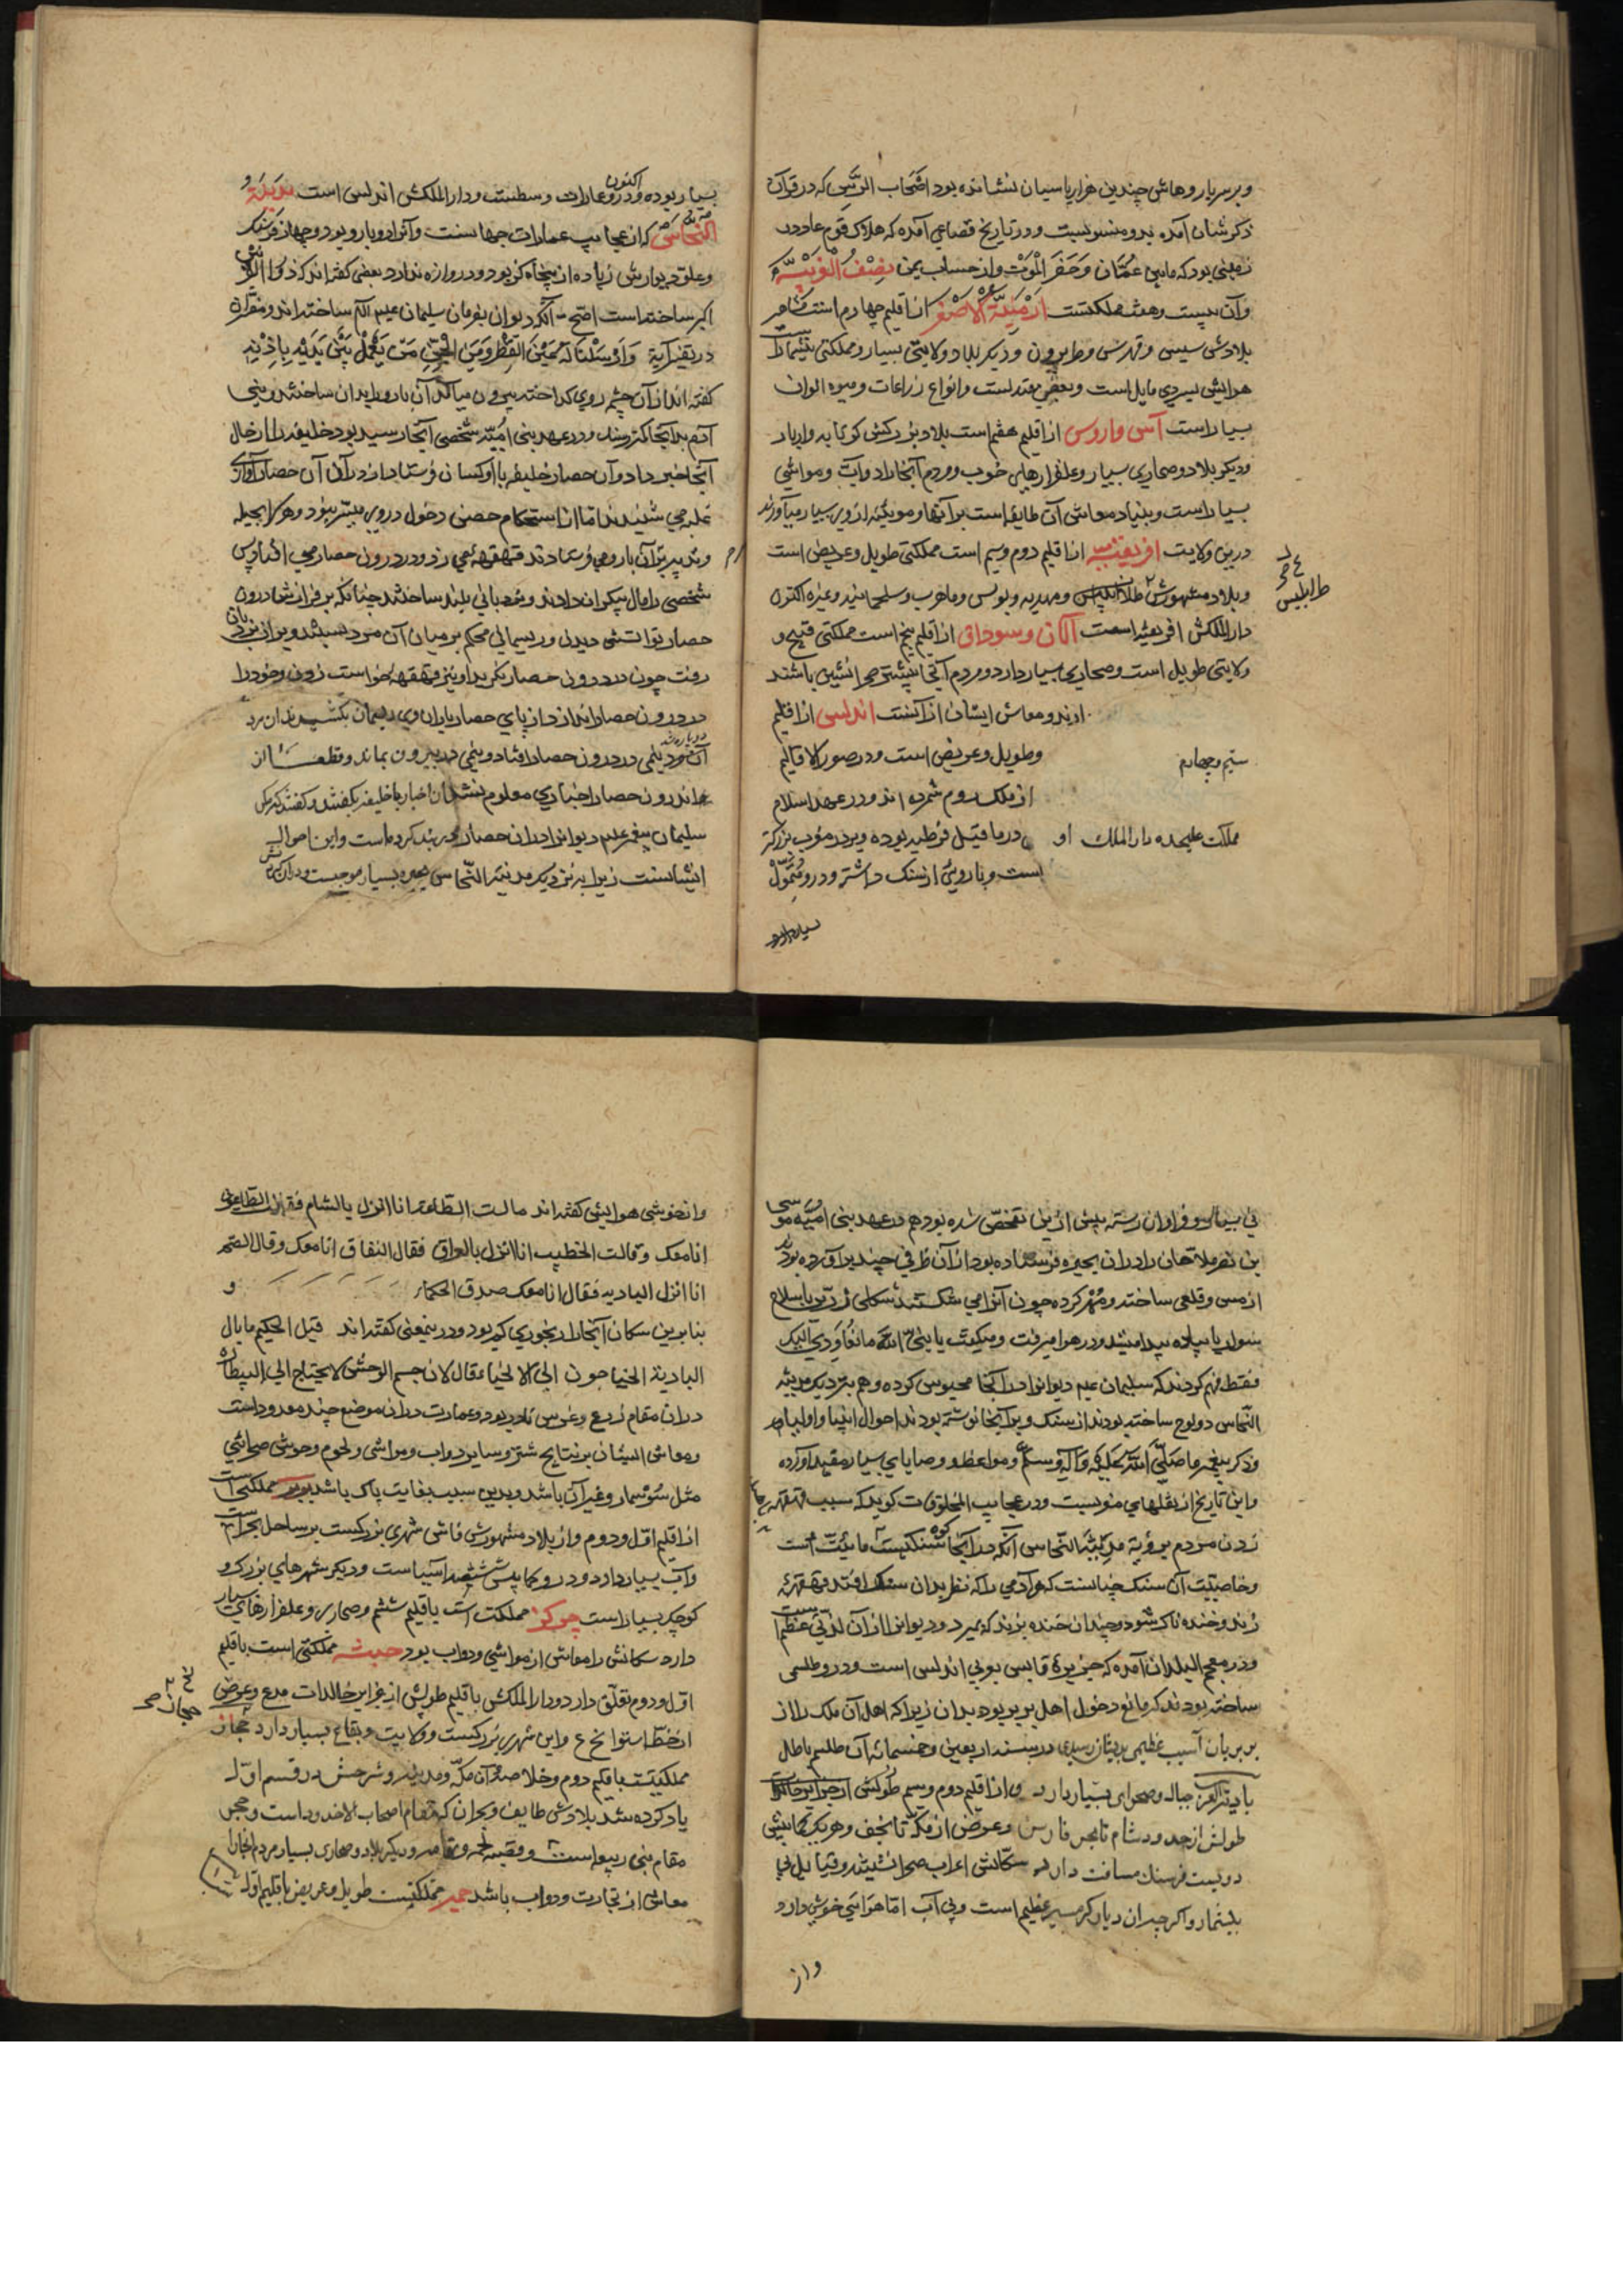 و بر سر بار و هاش چندین هزار پاسبان نشانده بود اصحاب الرس که در قرآن
ذکر شان آمده بدو منسوبست و در تاریخ قضاعی آمده که هلاک قوم عاد در
زمینی بود که مابین عمان و حضر الموت و از حساب یمن نصف الغربیه
و آن بیست و هشت مملکتست ارمنیة الاصغر از اقلیم چهارم است مشاهیر
بلادش سیس و قبرس و طرابزون و دیگر بلاد و ولایتی بسیار و مملکتی بیشمار است
هوایش بسردی مایل است و بعضی معتدلست و انواع زراعات و میوه الوان
بسیار است آس و اروس از اقلیم هفتم است بلاد بزرگش کوبابه و اربار
و دیگر بلاد و صحاری بسیار و علفزارهای خوب و مردم آنجا را دواب و مواشی
بسیار است و بنیاد معاش آن طایفه است بر آنها و موینه از وی بسیار میآورند
درین ولایت افریقیه از اقلیم دوم و سیم است مملکتی طویل و عریض است
طرابلس
و بلاد مشهورش طرابلس و مهدیه و تونس و و سلجماسه و غیره اکثرن
دار الملکش افریقیه است آلان و سوداق از اقلیم پنج است مملکتی فتیح و
ولایتی طویل است و صحاری بسیار دارد و مردم آنجا بیشتر صحرانشین باشند
ارند و معاش ایشان از آنست اندلس از اقلیم
سیم و چهارم و طویل و عریض است و در صور الاقالیم
از ملک روم شمرده اند و در عهد اسلام
مملکت علیحده دار الملک او در ما قبل قرطبه بوده و برد مغرب بزرگتر
است و باروی از سنگ داشته و درو متمول
بسیار بوده
بسیار بوده و درو عمارات اکنون وسطست و دار الملکش اندلس است مدینة
النحاس که از عجایب عمارات جهانست و آنرا دو بارو بود و چهار فرسنگ
و علو دیوارش زیاده از پنجاه گز بود و دروازه ندارد بعضی گفته اند که ذو القرنین
اکبر ساخته است اصح آنکه دیوان بفرمان سلیمان علیه السلام ساخته اند و مفسران
در تفسیر آیة و ارسلنا له عین القطر و من الجن من یعمل بین یدیه باذن ربه
گفته اند از آن چشمه روی گداخته بیرون میآمد آن بارو را بدان ساختند و بنی
آدم بدآنجا کمتر رسند و در عهد بنی امیه شخصی آنجا رسید بود خلیفه را از حال
آنجا خبر داد و آن حصار خلیفه با او کسان فرستاد از درون آن حصار آوازی
غلبه می شنیدند اما از استحکام حصن دخول در وی میسر نبود و هر که را بحیله
و تدبیر بر آن بارو می فرستادند قهقهه می زد و در درون حصار می افتاد پس
شخصی را مال بیکران دادند و نردبانی بلند ساختند چنانکه بر فرازش درون
حصار توانستی دیدن و ریسمانی محکم بر میان آن مرد بستند و بر آن نردبان
رفت چون در درون حصار نگرید او نیز قهقهه خواست زدن و خود را
در درون حصار انداز از پای حصار یاران وی ریسمان بکشیدند آن مرد
دو پاره شد
آن مرد نیمی در درون حصار افتاد و نیمی در بیرون بماند و قطعا از
اندرون حصار اخباری معلوم نشد آن اخبار با خلیفه بگفتند و گفتند که مگر
سلیمان پیغمبر علیه دیوانرا در آن حصار در بند کرده است و این احوال
ایشانست زیرا به نزدیک مدینة النحاس بحیره بسیار موجست و در آن
نی بسیار و فراوان رسته پیش ازین تفحص شده بود هم در عهد بنی امیه موسی
بن نصر ملاحان را در آن بحیره فرستاده بود از آن ظرفی چند برآورده بودند
از مس و قلعی ساخته و مهر کرده چون آنرا می شکستند شکلی زرین با سلاح
سوار یا پیاده پیدا میشد و در هوا میرفت و میگفت یا نبی الله ما نعاودی الیک
فقط فهم کردند که سلیمان علیه دیوانرا در آنجا محبوس کرده و هم بنزدیک مدینة
النحاس دو لوح ساخته بودند از سنگ و بر آنجا نوشته بودند احوال انبیا و اولیا و
ذکر پیغمبر ما صلی الله علیه و آله و سلم و مواعظ و وصایای بسیار مقید آورده
و این تاریخ از نقلهای منوبست و در عجایب المخلوقات گوید که سبب قهقهه
زدن مردم برؤیة مدینة النحاس آنکه در آنجا کوه سنگیست مانیت است
و خاصیت آن سنگ چنانست که هر آدمی را که نظر بدان سنگ افتد قهقهه
زند و خنده ناک شود و چندان خنده بزند که بمیرد و دیوانرا از آن لذتی عظیم است
و در معجم البلدان آمده که جزیرة قابس بوبی اندلس است و درو طلسمی
ساخته بودند که مانع دخول اهل بربر بود بدان زیرا که اهل آن ملک را از
بربریان آسیب عظیمی بدیشان رسیدی در سنه اربعین و خمسمائه آن طلسم باطل
بادیة العرب جبال و صحرای بسیار دارد و از اقلیم دوم و سیم طولش از جزایر خالدات
طولش از حدود شام تا بحر فارس و عرض از مکه تا نجف و هر یک کمابیش
دویست فرسنگ مسافت دارد سکانش اعراب صحرانشیند و قبایل بی
بیشمار و اگرچه در آن دیار گرمسیر عظیم است و بی آب اما هوایی خوش دارد
و از
و از خوشی هوایش گفته اند قالت الطاعة انا انزل بالشام فقال الطاعون
انا معک و قالت الخطیب انا انزل بالعراق فقال النفاق انا معک و قال الصحة
انا انزل البادیه فقال انا معک صدق الحکماء و
بنابرین سکان آنجا را رنجوری کم بود و درین معنی گفته اند قیل الحکیم ما بال
البادیة الخیما جون الی الاطباء فقال لان جسم الوحش لا یحتاج الی البیطاره
در آن مقام زرع و غرس نادر بود و عمارت در آن موضع چند معدود است
و معاش ایشان بر نتایج شتر و سایر دواب و مواشی و لحوم وحوش صحرایی
مثل سوسمار و غیر آن باشد و بدین سبب بغایت پاک باشد بربر مملکتی است
از اقلیم اول و دوم و از بلاد مشهورش فاس شهری بزرگیست بر ساحل بحر است
و آب بسیار دارد و درو کمابیش ششصد آسیاست و دیگر شهرهای بزرگ و
کوچک بسیار است چرکز مملکت است با قلیم ششم و صحاری و علفزارهای بسیار
دارد سکانش را معاش از مواشی و دواب بود حبشه مملکتی است باقلیم
اول و دوم تعلق دارد و دار الملکش باقلیم طولش از جزایر خالدات مدع و عرض
از خط استوا نح ع و این شهری بزرگیست و ولایت و بقاع بسیار دارد حجاز
حجاز
مملکتیست باقلیم دوم و خلاصه آن مکه و مدینه و شرحش در قسم اول
یاد کرده شد بلادش طایف و نجران که مقام اصحاب الاخدود است و حجر
مقام بنی ربیعه است و قصبه و دیگر بلاد و صحاری بسیار مردم آنجا را
معاش از تجارت و دواب باشد حمیر مملکتیست طویل و عریض باقلیم اول